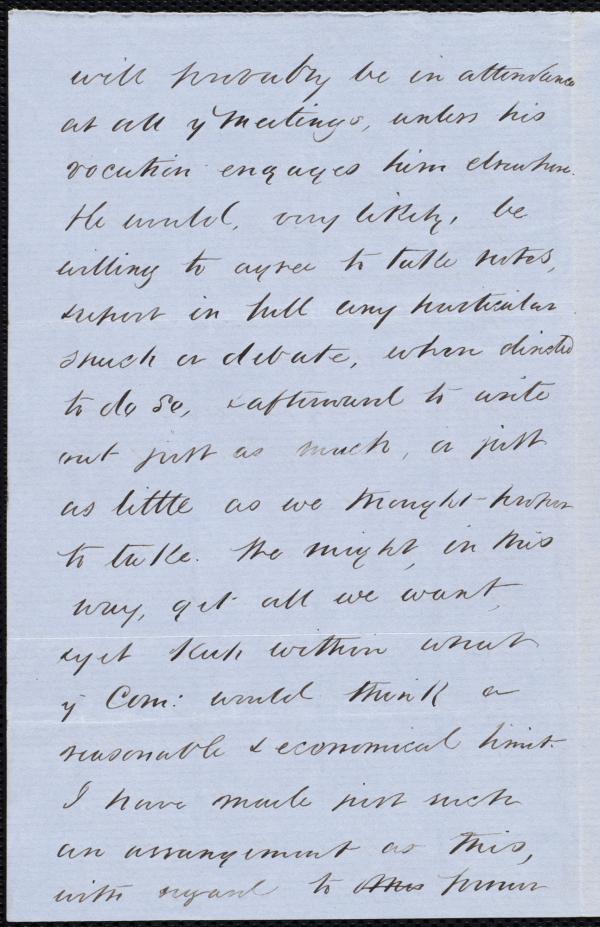 will probably be in attendance
at all yͤ meetings, unless his
vocation engages him elsewhere.
He would, very likely, be
willing to agree to take notes,
& report in full any particular
speech or debate, when directed
to do so, & afterward to write
out just as much, or just
as little as we thought proper
to take. We might, in this
way, get all we want,
& yet keep within what
yͤ Com: would think a
reasonable & economical limit.
I have made just such
an arrangement as this,
with regard to former